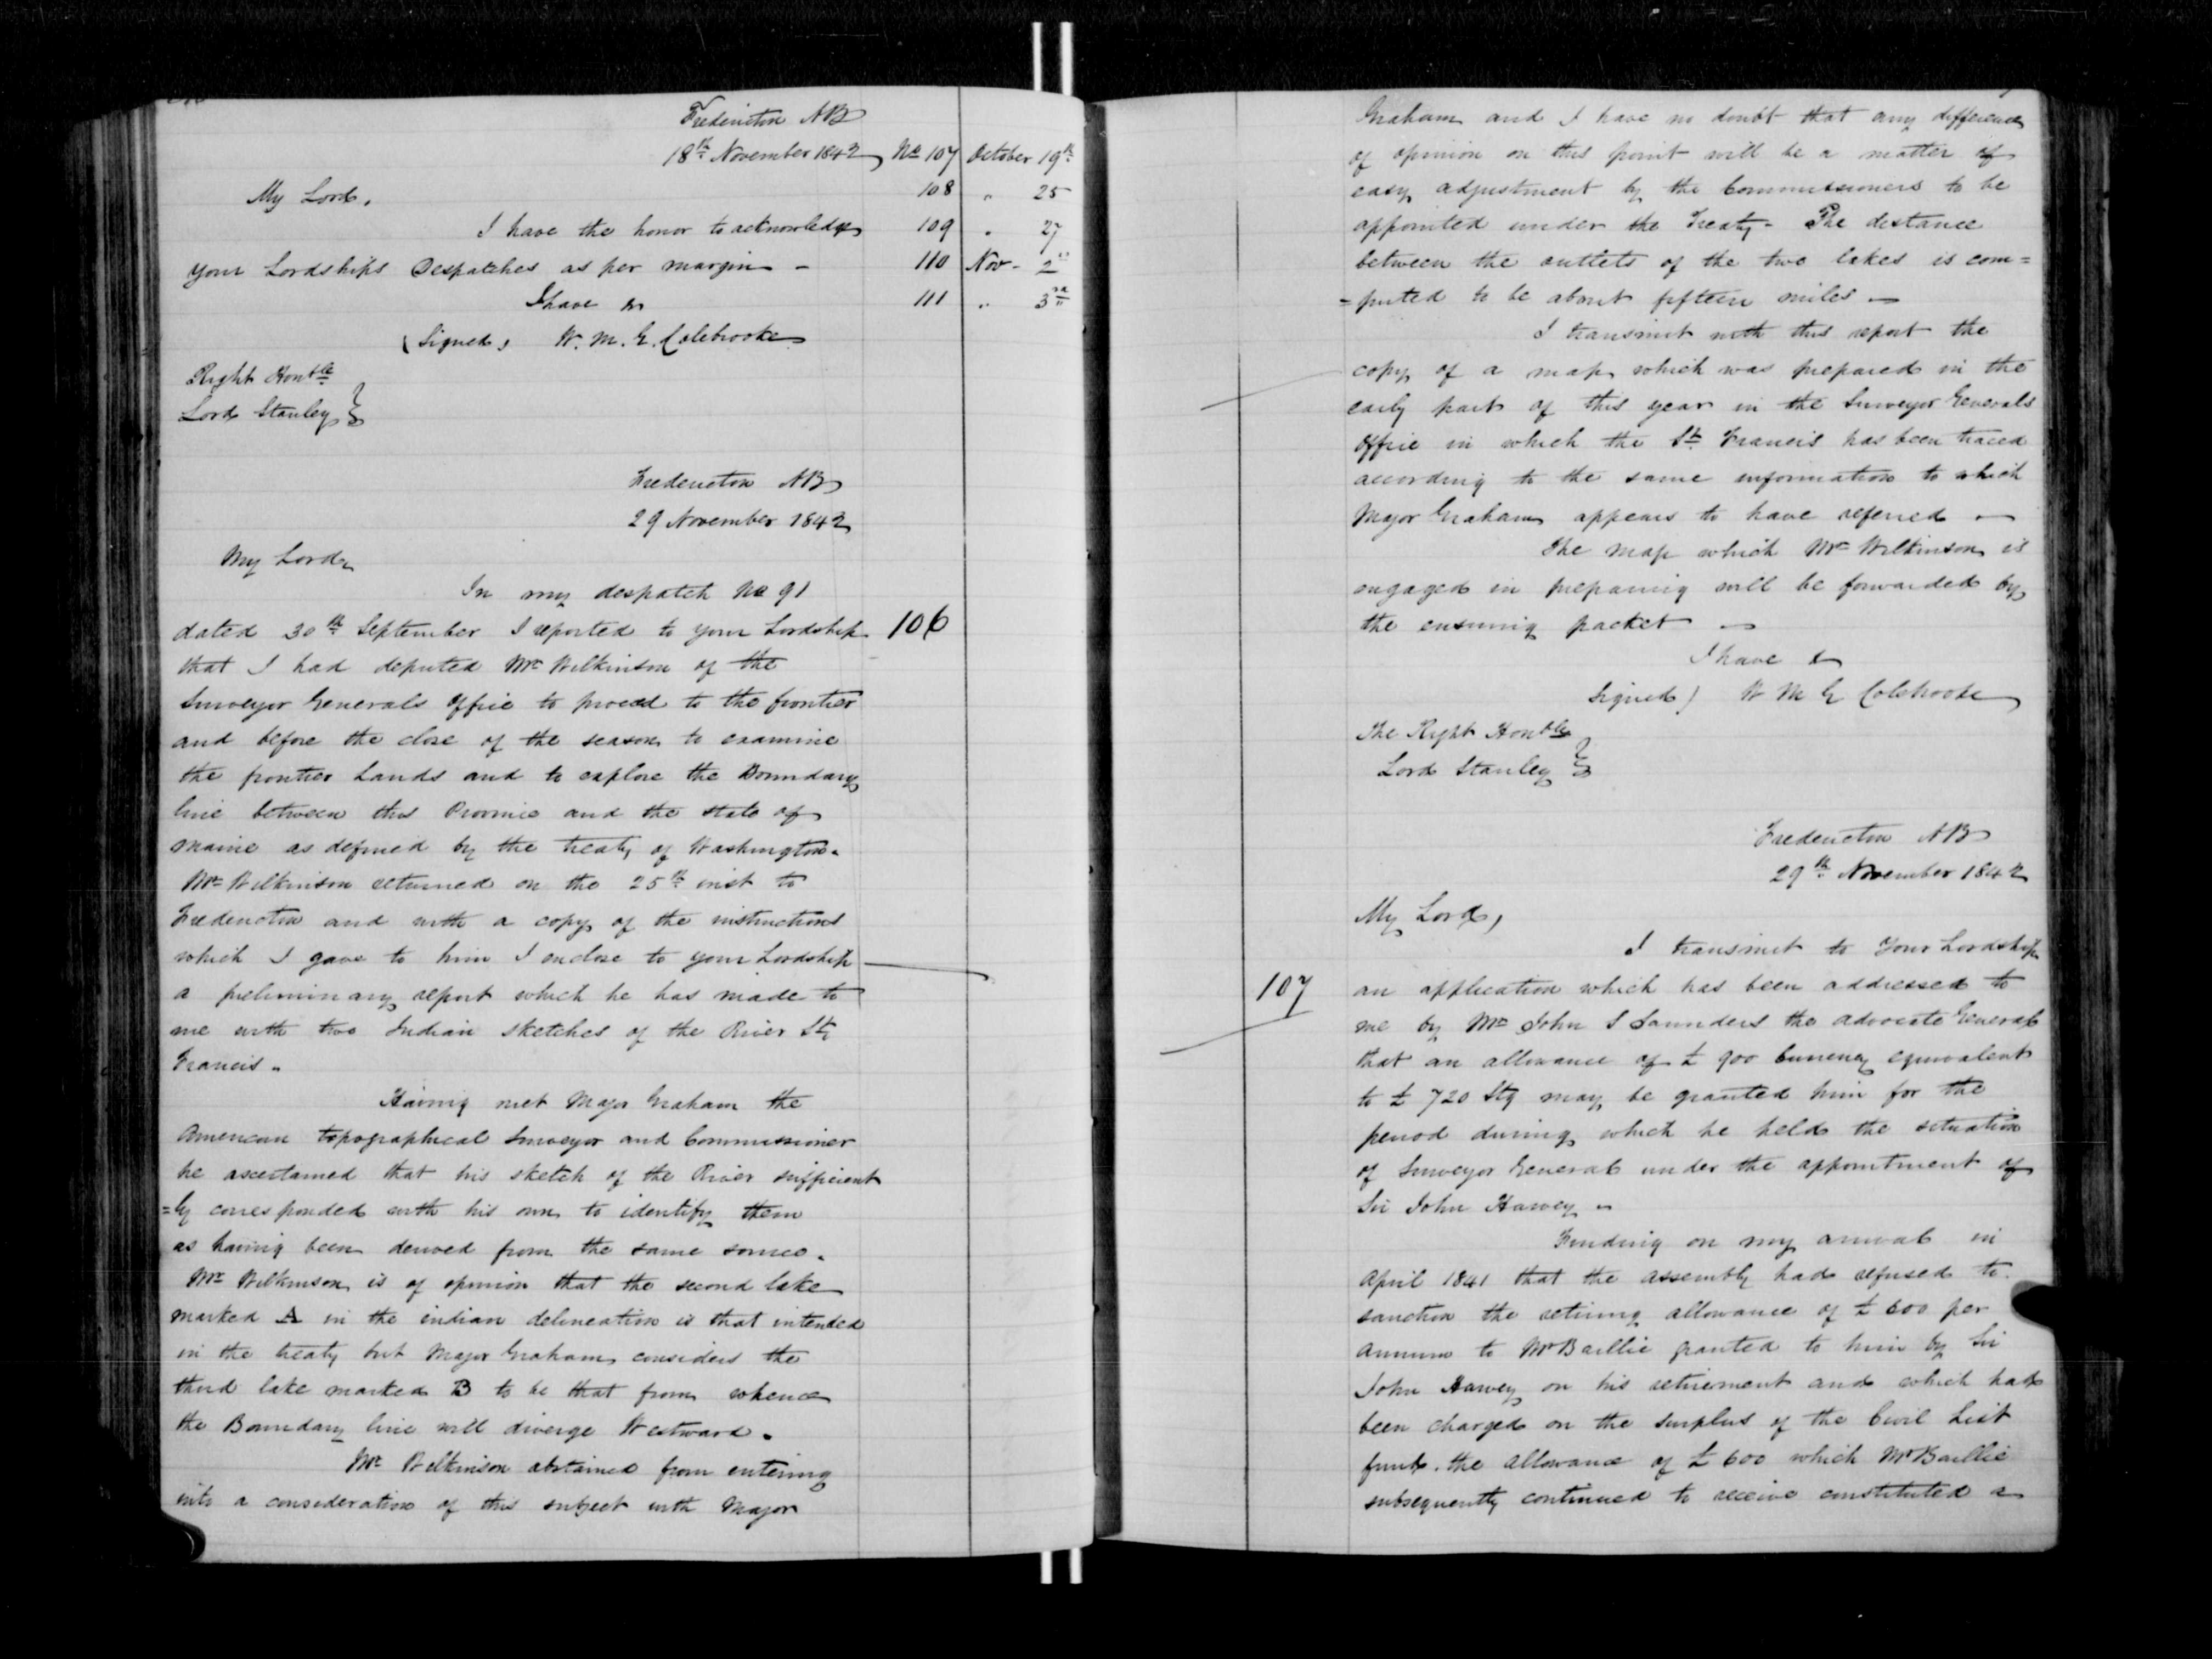 Fredericton NB
18th November 1842 No 107 October 19th
My Lord, 108 " 25
I have the honor to acknowledge 109 " 27
your Lordships Despatches as per margin - 110 Nov - 2"
I have &c 111 " 3rd
(Signed) W. M. G. Colebrooke
Right Honble
Lord Stanley
Fredericton NB
29 November 1842
My Lord
In my despatch No 91
dated 30th September I reported to your Lordship 106
that I had deputed Mr Wilkinson of the
Surveyor Generals Office to proceed to the frontier
and before the close of the season to examine
the frontier Lands and to explore the Boundary
line between this Province and the State of
Maine as defined by the treaty of Washington.
Mr Wilkinson returned on the 25th inst to
Fredericton and with a copy of the instructions
which I gave to him I enclose to your Lordship
a preliminary report which he has made to
me with two Indian sketches of the River St
Francis.
Having met Major Graham the
American topographical Surveyor and Commissioner
he ascertained that his sketch of the River sufficient
=ly corresponded with his own to identify them
as having been derived from the same source.
Mr Wilkinson is of opinion that the second lake
marked A in the indian delineation is that intended
in the treaty but Major Graham considers the
third lake marked B to be that from whence
the Boundary line will diverge Westward.
Mr Wilkinson abstained from entering
into a consideration of this subject with Major
Graham and I have no doubt that any difference
of opinion on this point will be a matter of
easy adjustment by the Commissioners to be
appointed under the Treaty - The distance
between the outlets of the two lakes is com=
=puted to be about fifteen miles -
I transmit with this report the
copy of a map which was prepared in the
early part of this year in the Surveyor Generals
Office in which the St Francis has been traced
according to the same information to which
Major Graham appears to have referred -
The map which Mr Wilkinson is
engaged in preparing will be forwarded by
the ensuing packet -
I have &
Signed) W M G Colebrooke
The Right Honble
Lord Stanley
Fredericton NB
29th November 1842
My Lord,
I transmit to Your Lordship
107 an application which has been addressed to
me by Mr John S Saunders the Advocate General
that an allowance of £ 900 Currency equivalent
to £ 720 Stg may be granted him for the
period during which he held the situation
of Surveyor General under the appointment of
Sir John Harvey -
Finding on my arrival in
April 1841 that the assembly had refused to
sanction the retiring allowance of £ 600 per
annum to Mr Baillie granted to him by Sir
John Harvey on his retirement and which had
been charged on the surplus of the Civil List
fund. the allowance of £ 600 which Mr Baillie
subsequently continued to receive constituted a